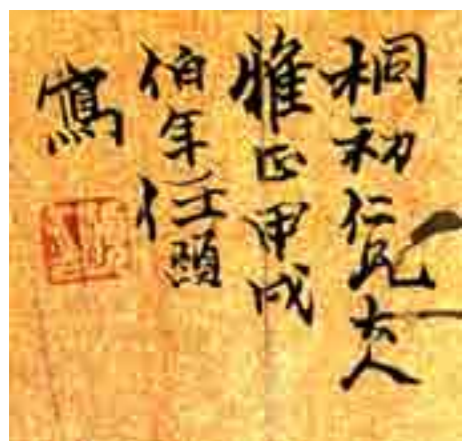 桐初仁兄大人
雅正甲戌
伯年任頤
寫